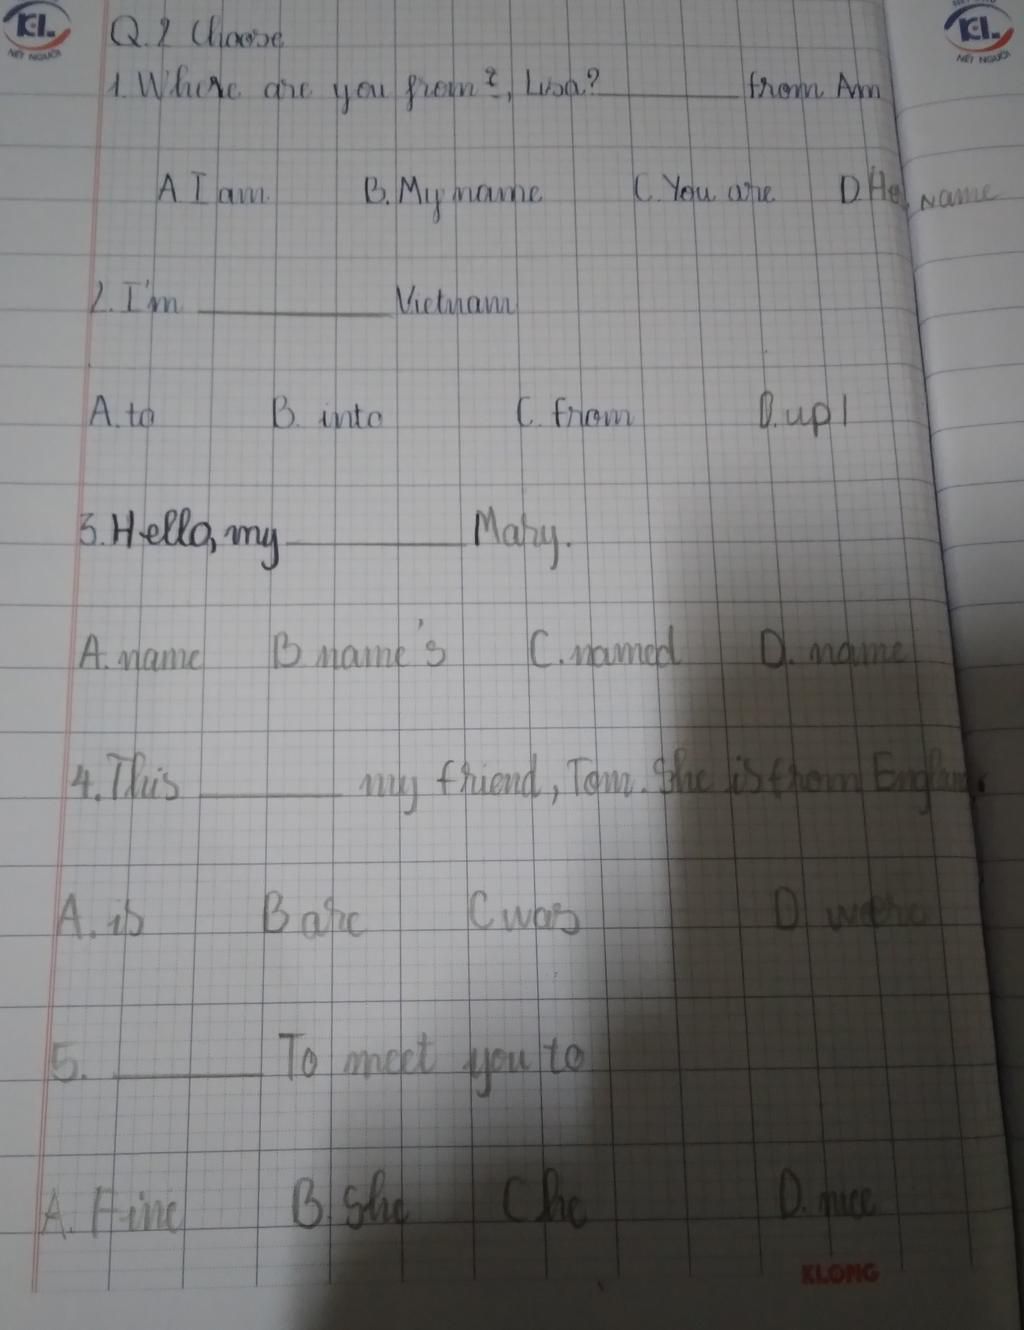 KL.
NÉT NGƯỜI
KL.
NÉT NGƯỜI
Q.2 Choose
1. Where are you from?, Lusa? ______ from Am
A I am B. My name C. You are D. Her name
2. I'm ______ Vietnam
A. to B. into C. from D. up
3. Hello, my ______ Mary.
A. name B name's C. named D. name
4. This ______ my friend, Tom. She is from
A. is B are C was D were
5. ______ To meet you to
A. Fine B. She C he D. nice
KLONG